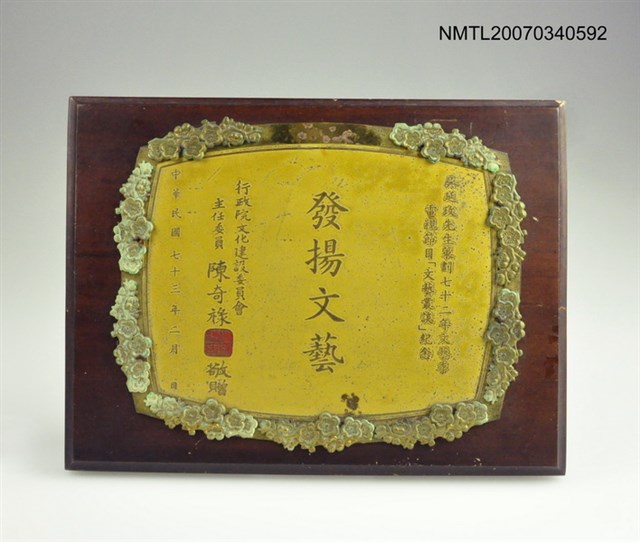 NMTL20070340592
先生策劃七十二年文藝季
電視節目「文藝叢談」紀念
發揚文藝
行政院文化建設委員會
主任委員 陳奇祿 敬贈
中華民國七十三年二月 日